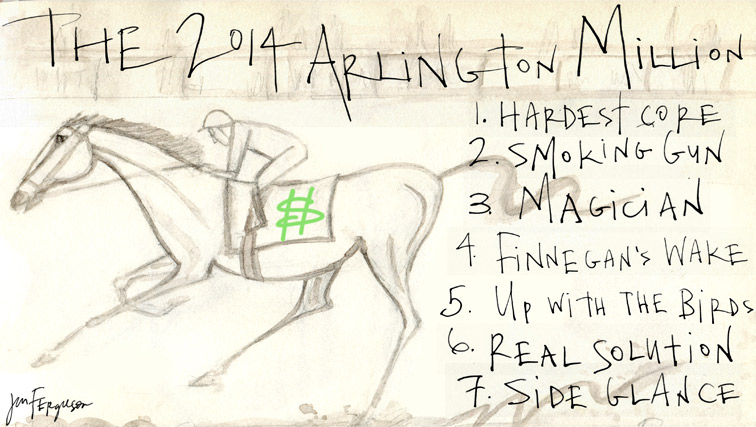 THE 2014 ARLINGTON MILLION
1. HARDEST CORE
2. SMOKING GUN
3. MAGICIAN
4. FINNEGAN'S WAKE
5. UP WITH THE BIRDS
6. REAL SOLUTION
7. SIDE GLANCE
$
Jen Ferguson